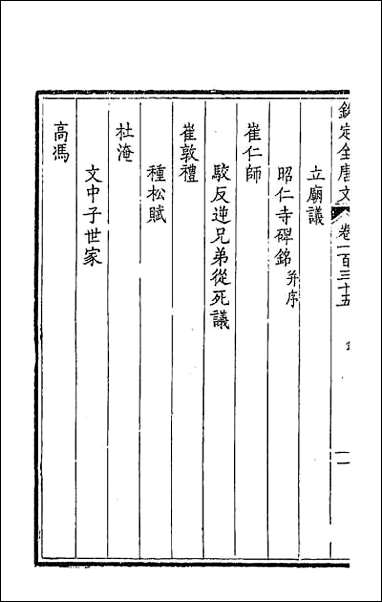 欽定全唐文 卷一百三十五 一
立廟議
昭仁寺碑銘 并序
崔仁師
駮反逆兄弟從死議
崔敦禮
種松賦
杜淹
文中子世家
高馮